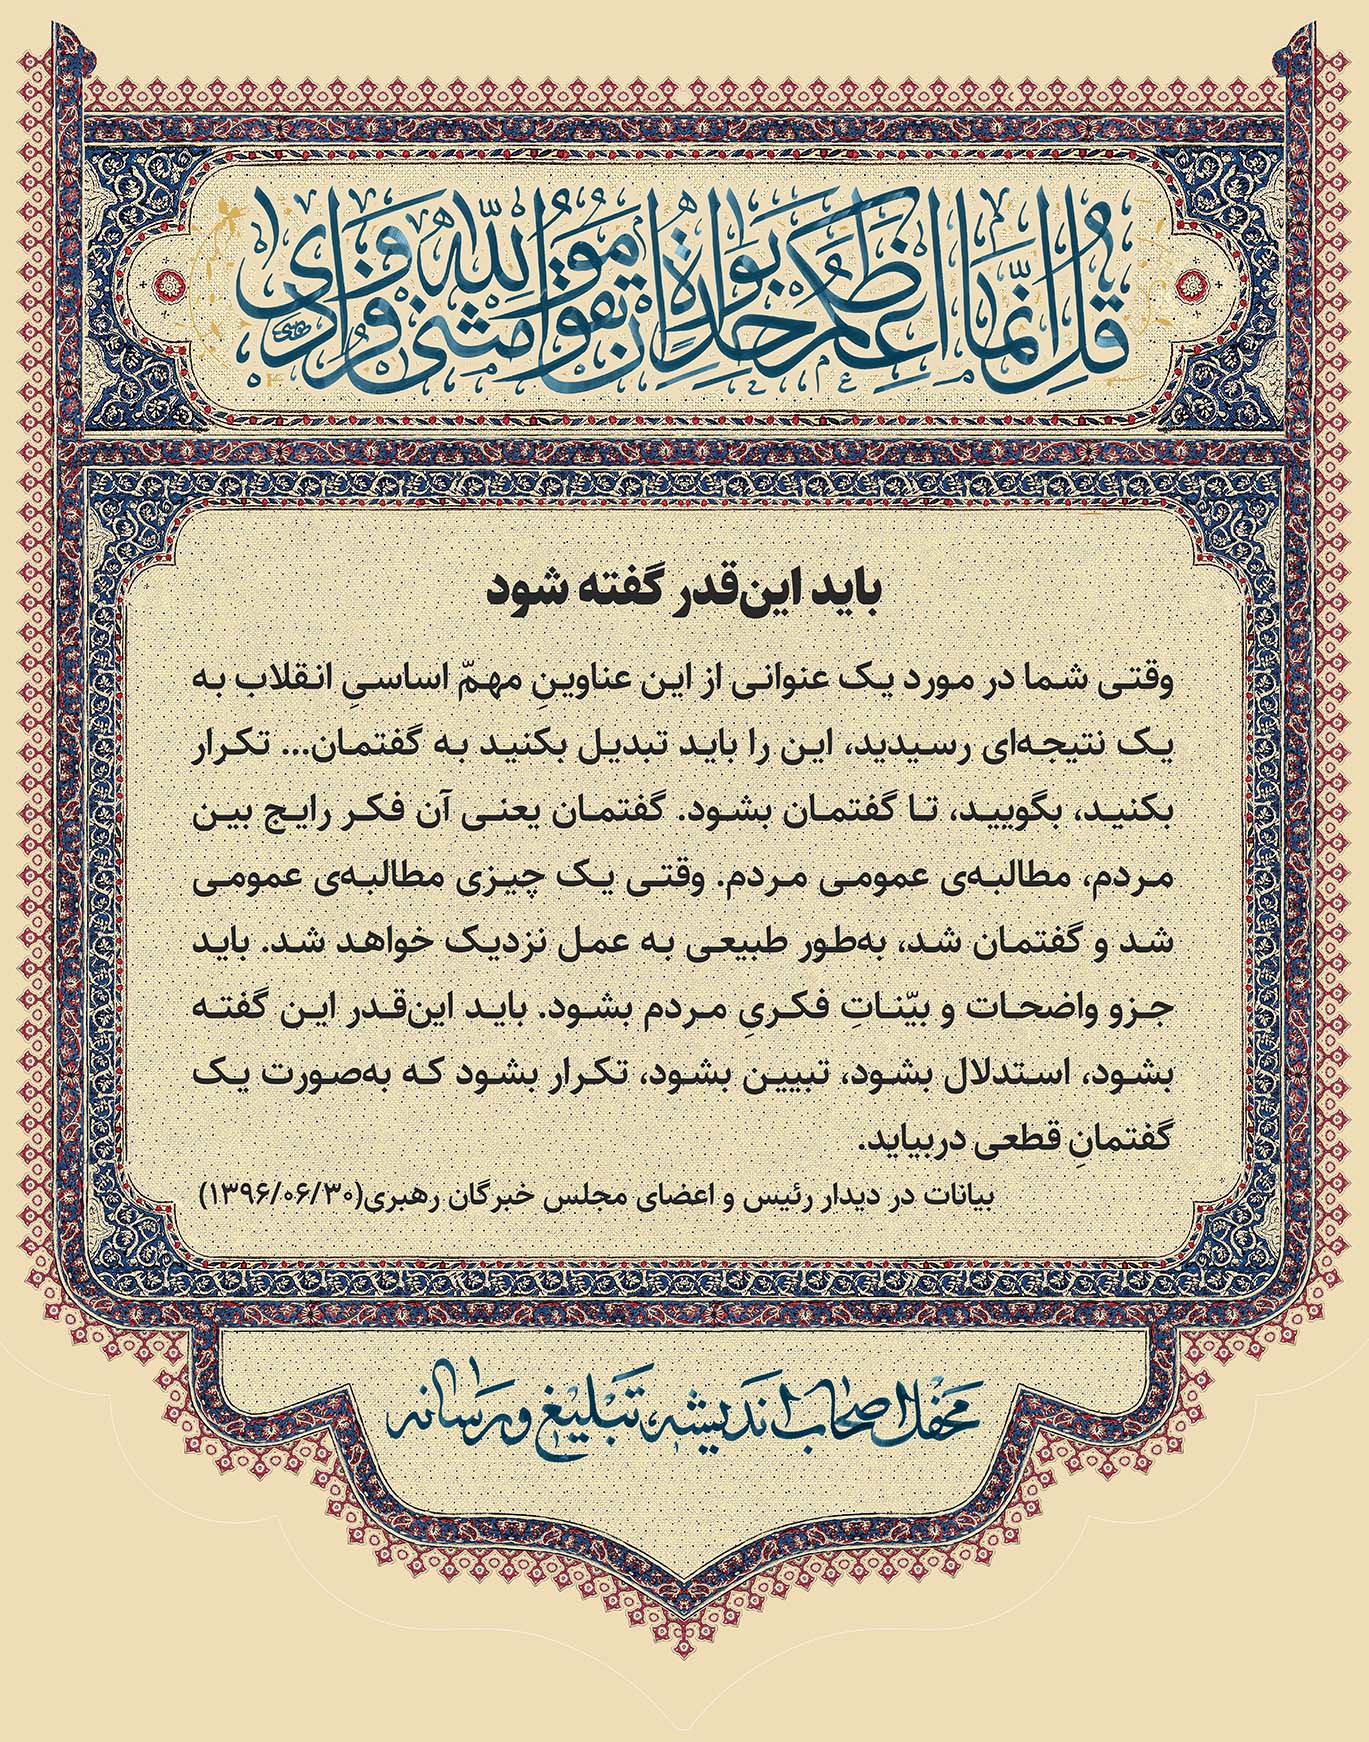 قل انما اعظکم بواحدة ان تقوموا لله مثنی و فرادی
باید این‌قدر گفته شود
وقتی شما در مورد یک عنوانی از این عناوینِ مهمّ اساسیِ انقلاب به
یک نتیجه‌ای رسیدید، این را باید تبدیل بکنید به گفتمان... تکرار
بکنید، بگویید، تا گفتمان بشود. گفتمان یعنی آن فکر رایج بین
مردم، مطالبه‌ی عمومی مردم. وقتی یک چیزی مطالبه‌ی عمومی
شد و گفتمان شد، به‌طور طبیعی به عمل نزدیک خواهد شد. باید
جزو واضحات و بیّناتِ فکریِ مردم بشود. باید این‌قدر این گفته
بشود، استدلال بشود، تبیین بشود، تکرار بشود که به‌صورت یک
گفتمانِ قطعی دربیاید.
بیانات در دیدار رئیس و اعضای مجلس خبرگان رهبری(۱۳۹۶/۰۶/۳۰)
محفل اصحاب اندیشه، تبلیغ و رسانه